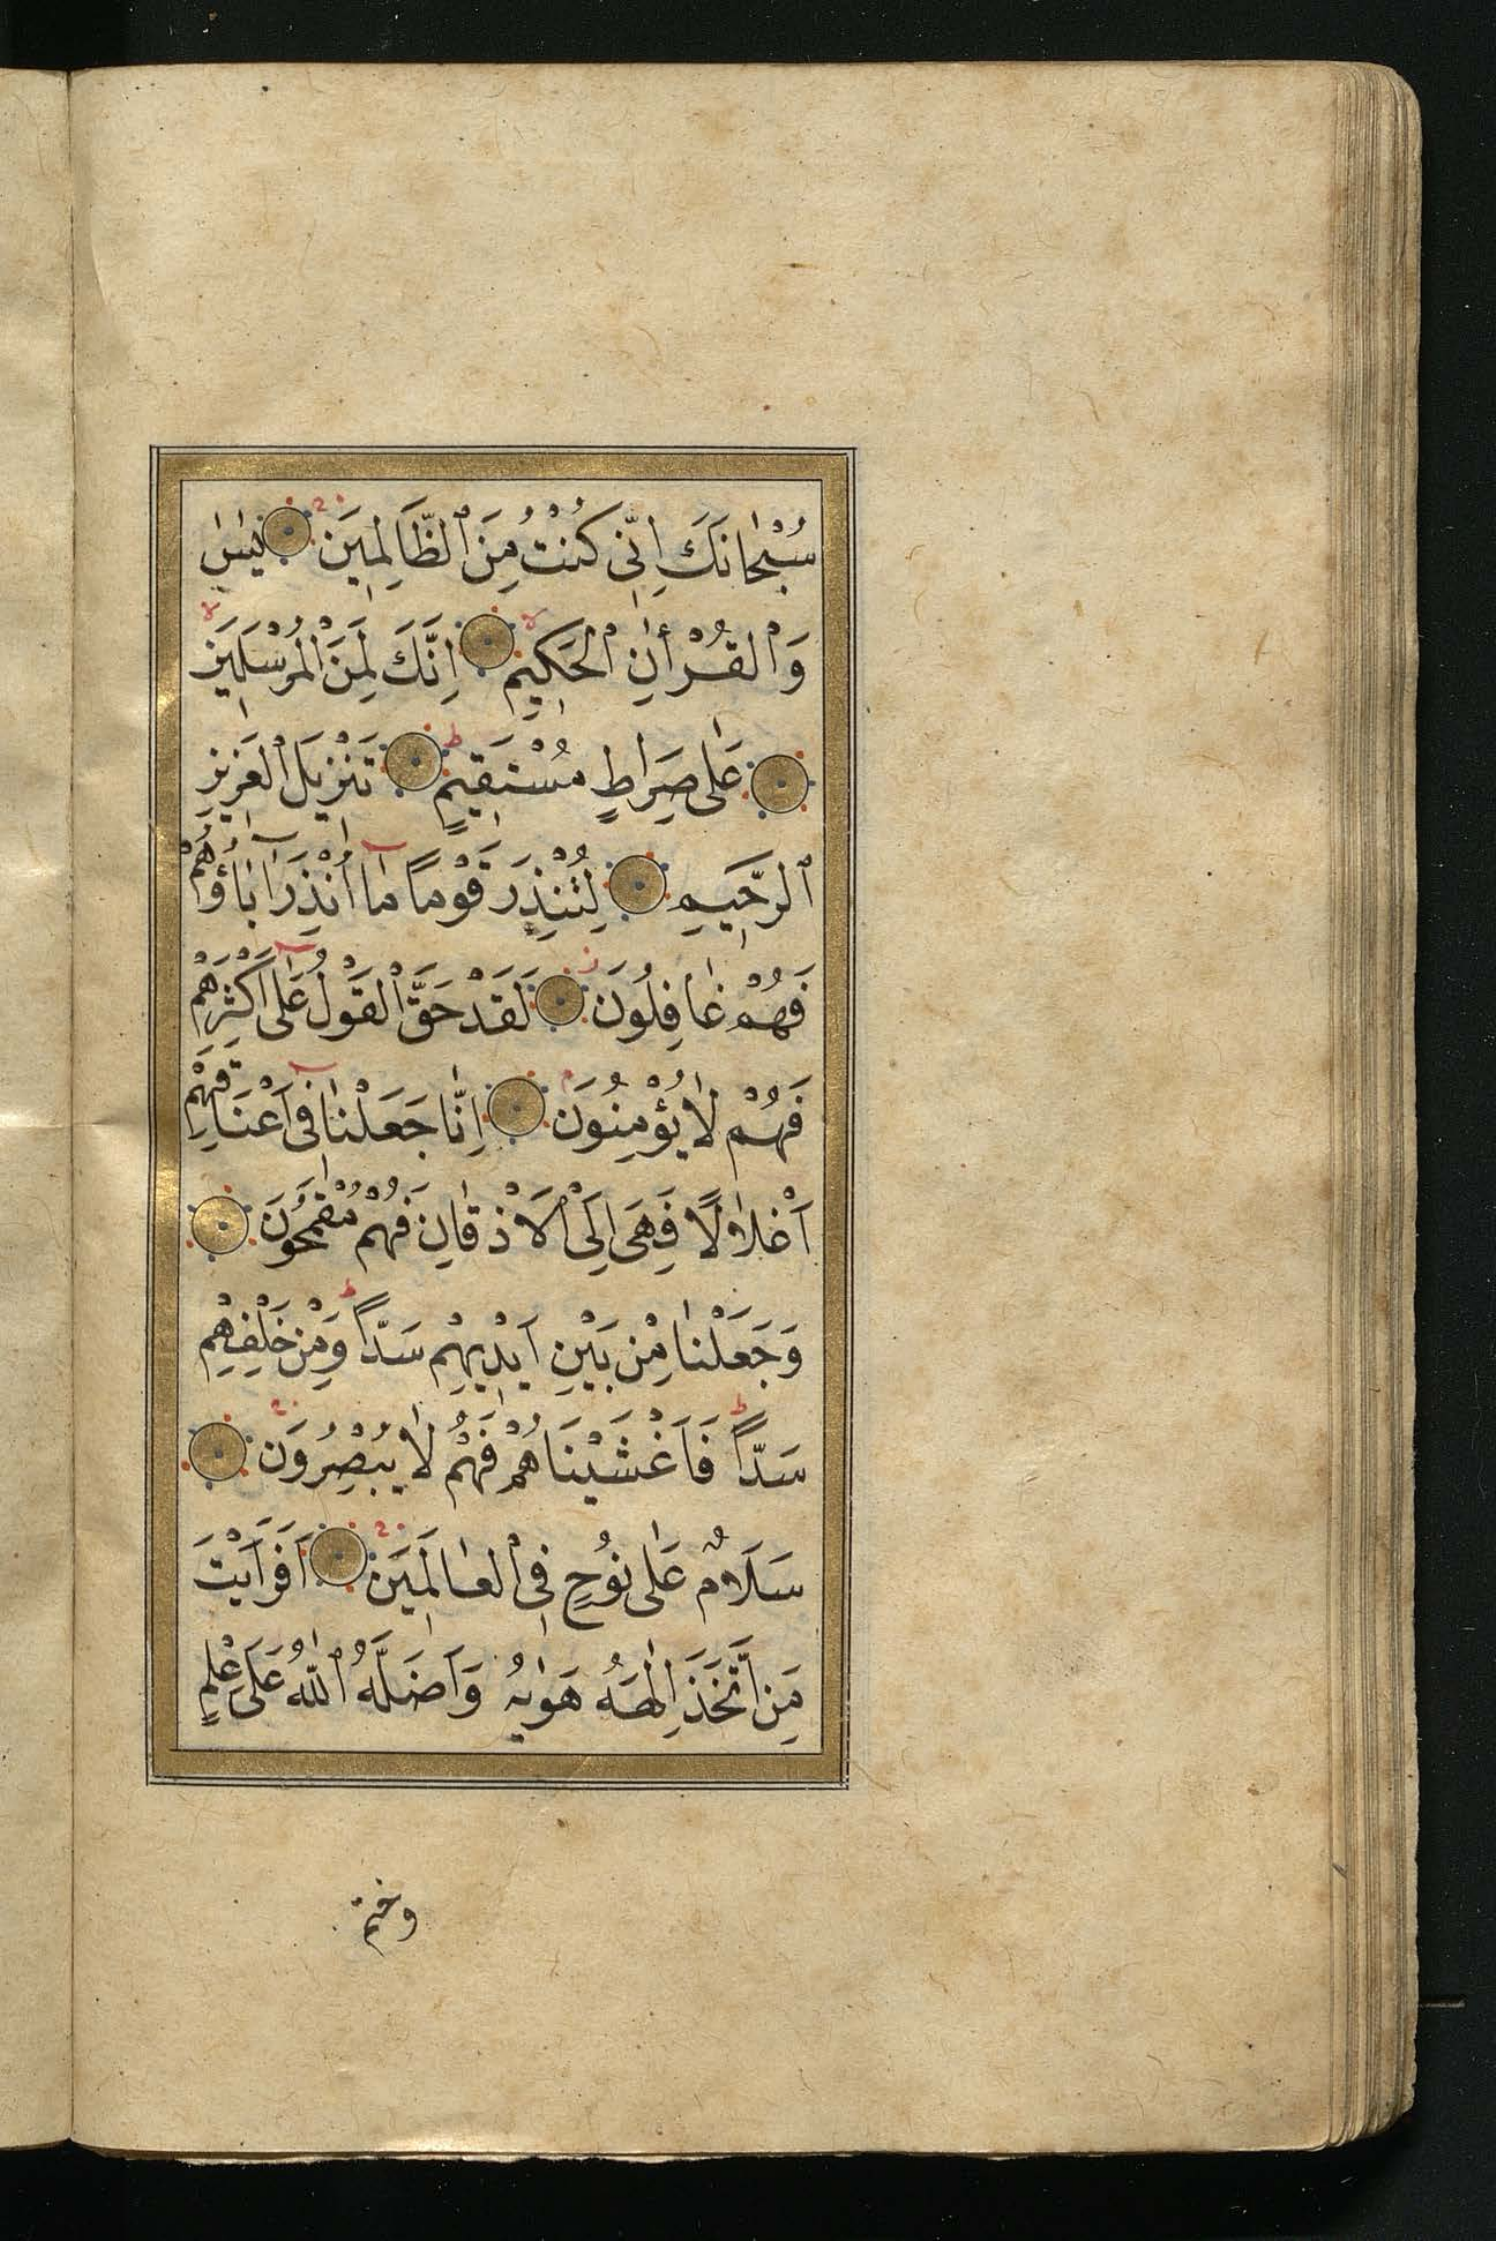 سُبْحَانَكَ اِنّٖى كُنْتُ مِنَ ٱلظَّالِمٖينَ يٰسٰ
وَٱلْقُرْاٰنِ ٱلْحَكٖيمِ اِنَّكَ لَمِنَ ٱلْمُرْسَلٖينَ
عَلٰى صِرَاطٍ مُسْتَقٖيمٍ تَنْزٖيلَ ٱلْعَزٖيزِ
ٱلرَّحٖيمِ لِتُنْذِرَ قَوْمًا مَٓا اُنْذِرَ اٰبَٓاؤُهُمْ
فَهُمْ غَافِلُونَ لَقَدْ حَقَّ ٱلْقَوْلُ عَلٰٓى اَكْثَرِهِمْ
فَهُمْ لَا يُؤْمِنُونَ اِنَّا جَعَلْنَا فٖٓى اَعْنَاقِهِمْ
اَغْلَالًا فَهِىَ اِلَى ٱلْاَذْقَانِ فَهُمْ مُقْمَحُونَ
وَجَعَلْنَا مِنْ بَيْنِ اَيْدٖيهِمْ سَدًّا وَمِنْ خَلْفِهِمْ
سَدًّا فَاَغْشَيْنَاهُمْ فَهُمْ لَا يُبْصِرُونَ
سَلَامٌ عَلٰى نُوحٍ فِى ٱلْعَالَمٖينَ اَفَرَاَيْتَ
مَنِ ٱتَّخَذَ اِلٰهَهُ هَوٰيهُ وَاَضَلَّهُ ٱللّٰهُ عَلٰى عِلْمٍ
وختم